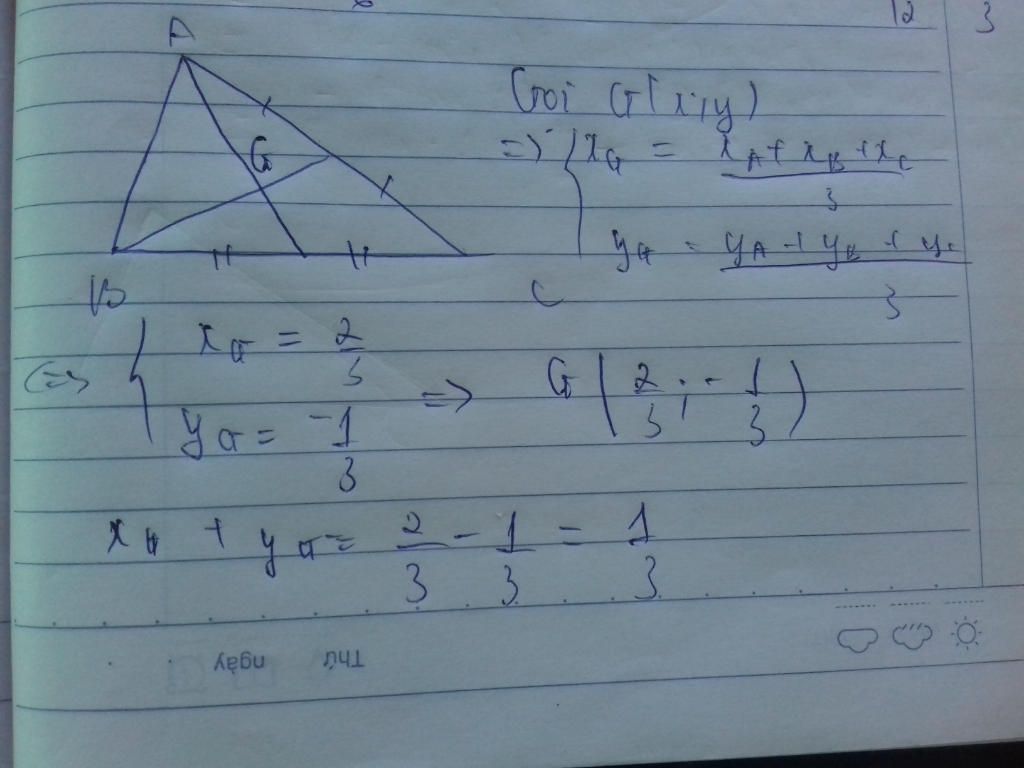 12 3
A
Gọi G(x;y)
G
=> { x_G = (x_A + x_B + x_C)/3
y_G = (y_A + y_B + y_C)/3
B C
<=> { x_G = 2/3
y_G = -1/3 => G(2/3; -1/3)
x_G + y_G = 2/3 - 1/3 = 1/3
Thứ ngày